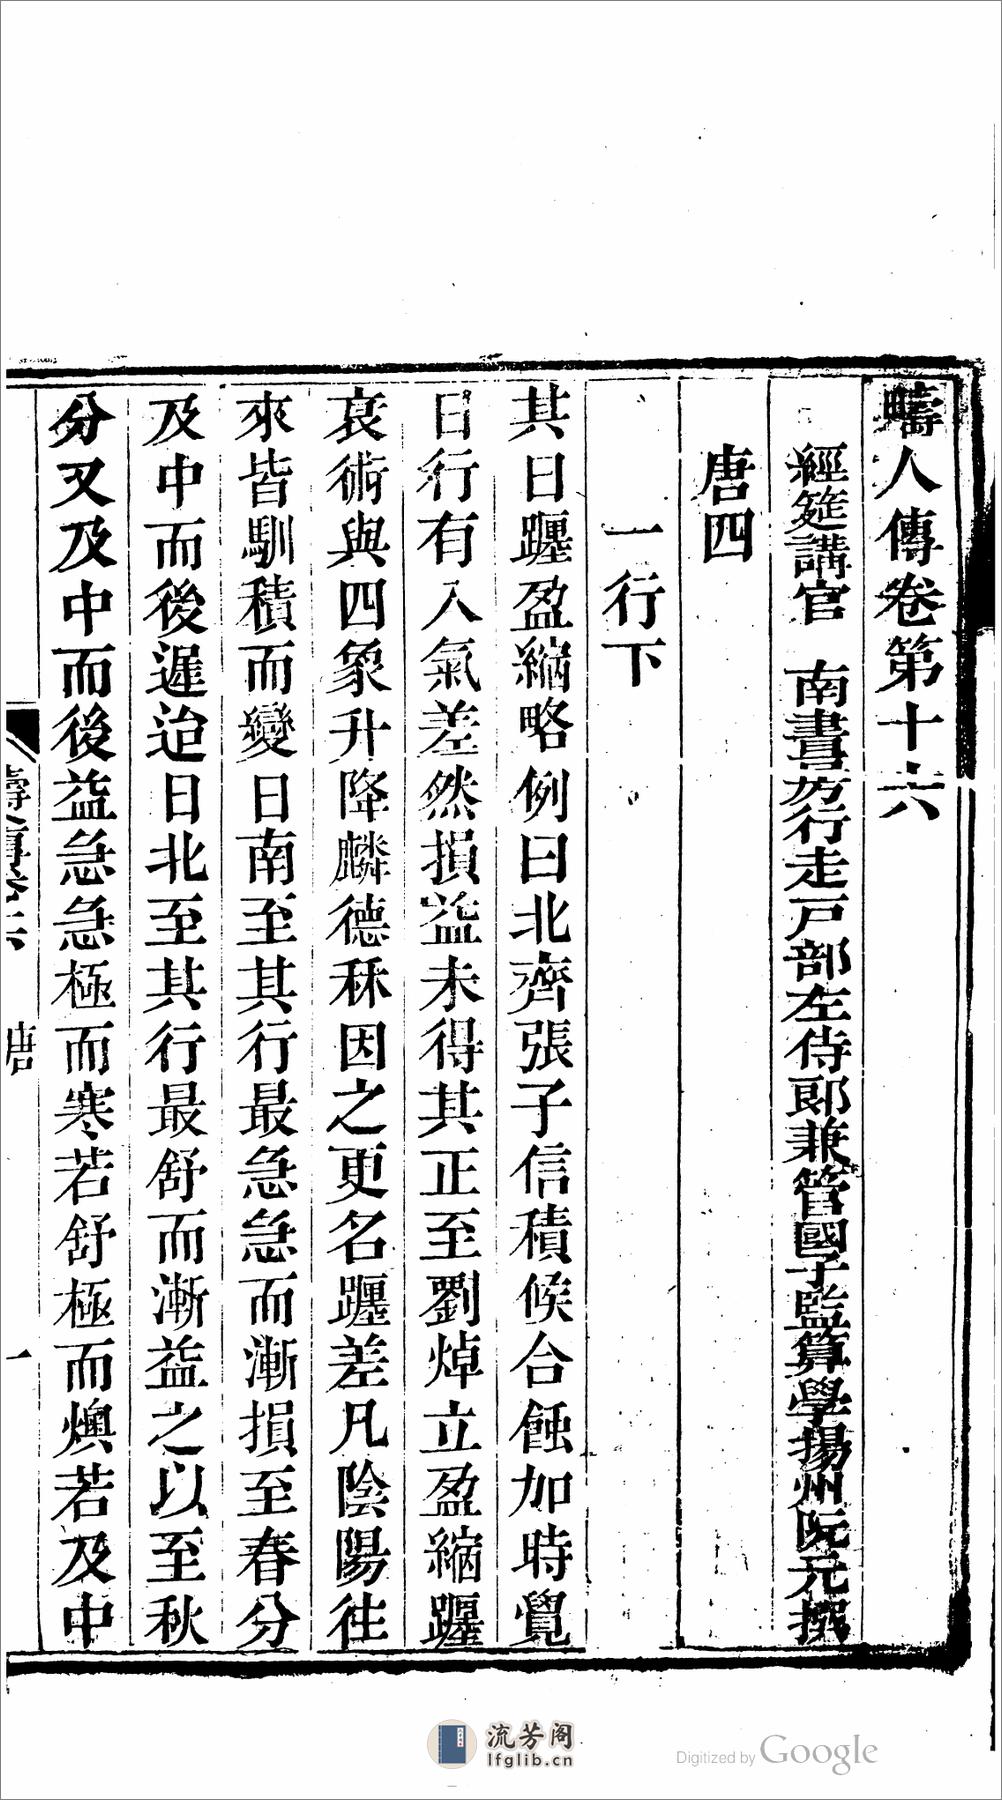 疇人傳卷第十六
經筵講官　南書房行走戶部左侍郎兼管國子監算學揚州阮元撰
唐四
一行下
其日躔盈縮略例曰北齊張子信積候合蝕加時覺
日行有入氣差然損益未得其正至劉焯立盈縮躔
衰術與四象升降麟德秝因之更名躔差凡陰陽往
來皆馴積而變日南至其行最急急而漸損至春分
及中而後遲迨日北至其行最舒而漸益之以至秋
分又及中而後益急急極而寒若舒極而燠若及中
唐
一
流芳阁
lfglib.cn
Digitized by Google